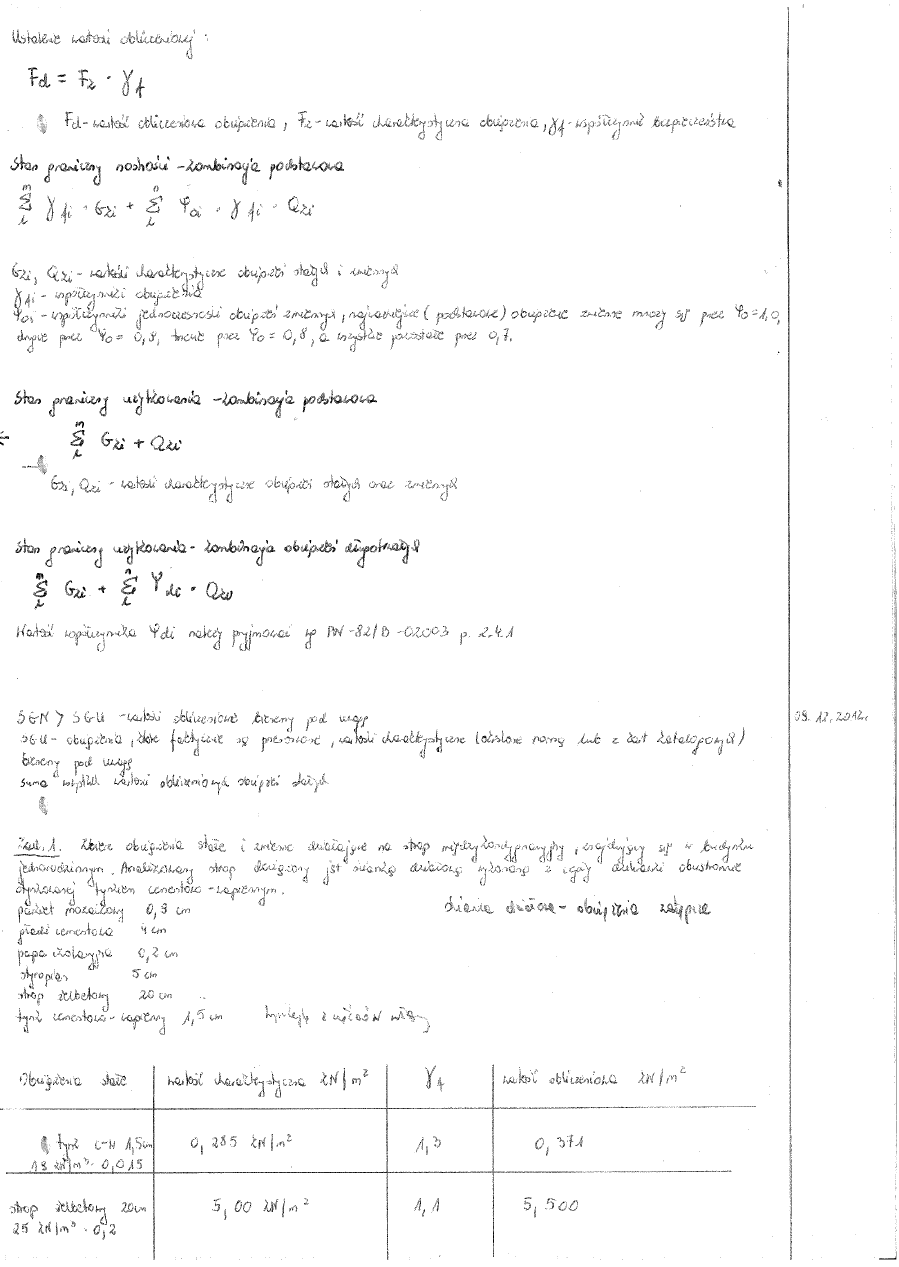 Ustalenie wartości obliczeniowej :
Fd = Fk · γf
Fd - wartość obliczeniowa obciążenia, Fk - wartość charakterystyczna obciążenia, γf - współczynnik bezpieczeństwa
Stan graniczny nośności - kombinacja podstawowa
m Σ i γfi · Gki + n Σ i Ψoi · γfi · Qki
Gki, Qki - wartości charakterystyczne obciążeń stałych i zmiennych
γfi - współczynniki obciążenia
Ψoi - współczynniki jednoczesności obciążeń zmiennych, najważniejsze (podstawowe) obciążenie zmienne mnoży się przez Ψo = 1,0,
drugie przez Ψo = 0,9, trzecie przez Ψo = 0,8, a wszystkie pozostałe przez 0,7.
Stan graniczny użytkowania - kombinacja podstawowa
m Σ i Gki + Qki
Gki, Qki - wartości charakterystyczne obciążeń stałych oraz zmiennych
Stan graniczny użytkowania - kombinacja obciążeń długotrwałych
m Σ i Gki + n Σ i Ψdi · Qki
Wartość współczynnika Ψdi należy przyjmować wg PN-82/B-02003 p. 2.4.1
SGN > SGU - wartości obliczeniowe bierzemy pod uwagę
09.12.2012r.
SGU - obciążenia, które faktycznie są przenoszone, wartości charakterystyczne (określone normą lub z kart katalogowych)
bierzemy pod uwagę
suma wszystkich wartości obliczeniowych obciążeń stałych
Zad. 1. Zbierz obciążenia stałe i zmienne działające na strop międzykondygnacyjny, znajdujący się w budynku
jednorodzinnym. Analizowany strop dociążony jest ścianką działową wykonaną z cegły dziurawki obustronnie
otynkowanej tynkiem cementowo-wapiennym.
parkiet mozaikowy 0,9 cm
ścianka działowa - obciążenia zastępcze
gładź cementowa 4 cm
papa izolacyjna 0,2 cm
styropian 5 cm
strop żelbetowy 20 cm
tynk cementowo-wapienny 1,5 cm
Obciążenia stałe wartość charakterystyczna kN/m² γf wartość obliczeniowa kN/m²
tynk c-w 1,5cm 0,285 kN/m² 1,3 0,371
19 kN/m³ · 0,015
strop żelbetowy 20cm 5,00 kN/m² 1,1 5,500
25 kN/m³ · 0,2